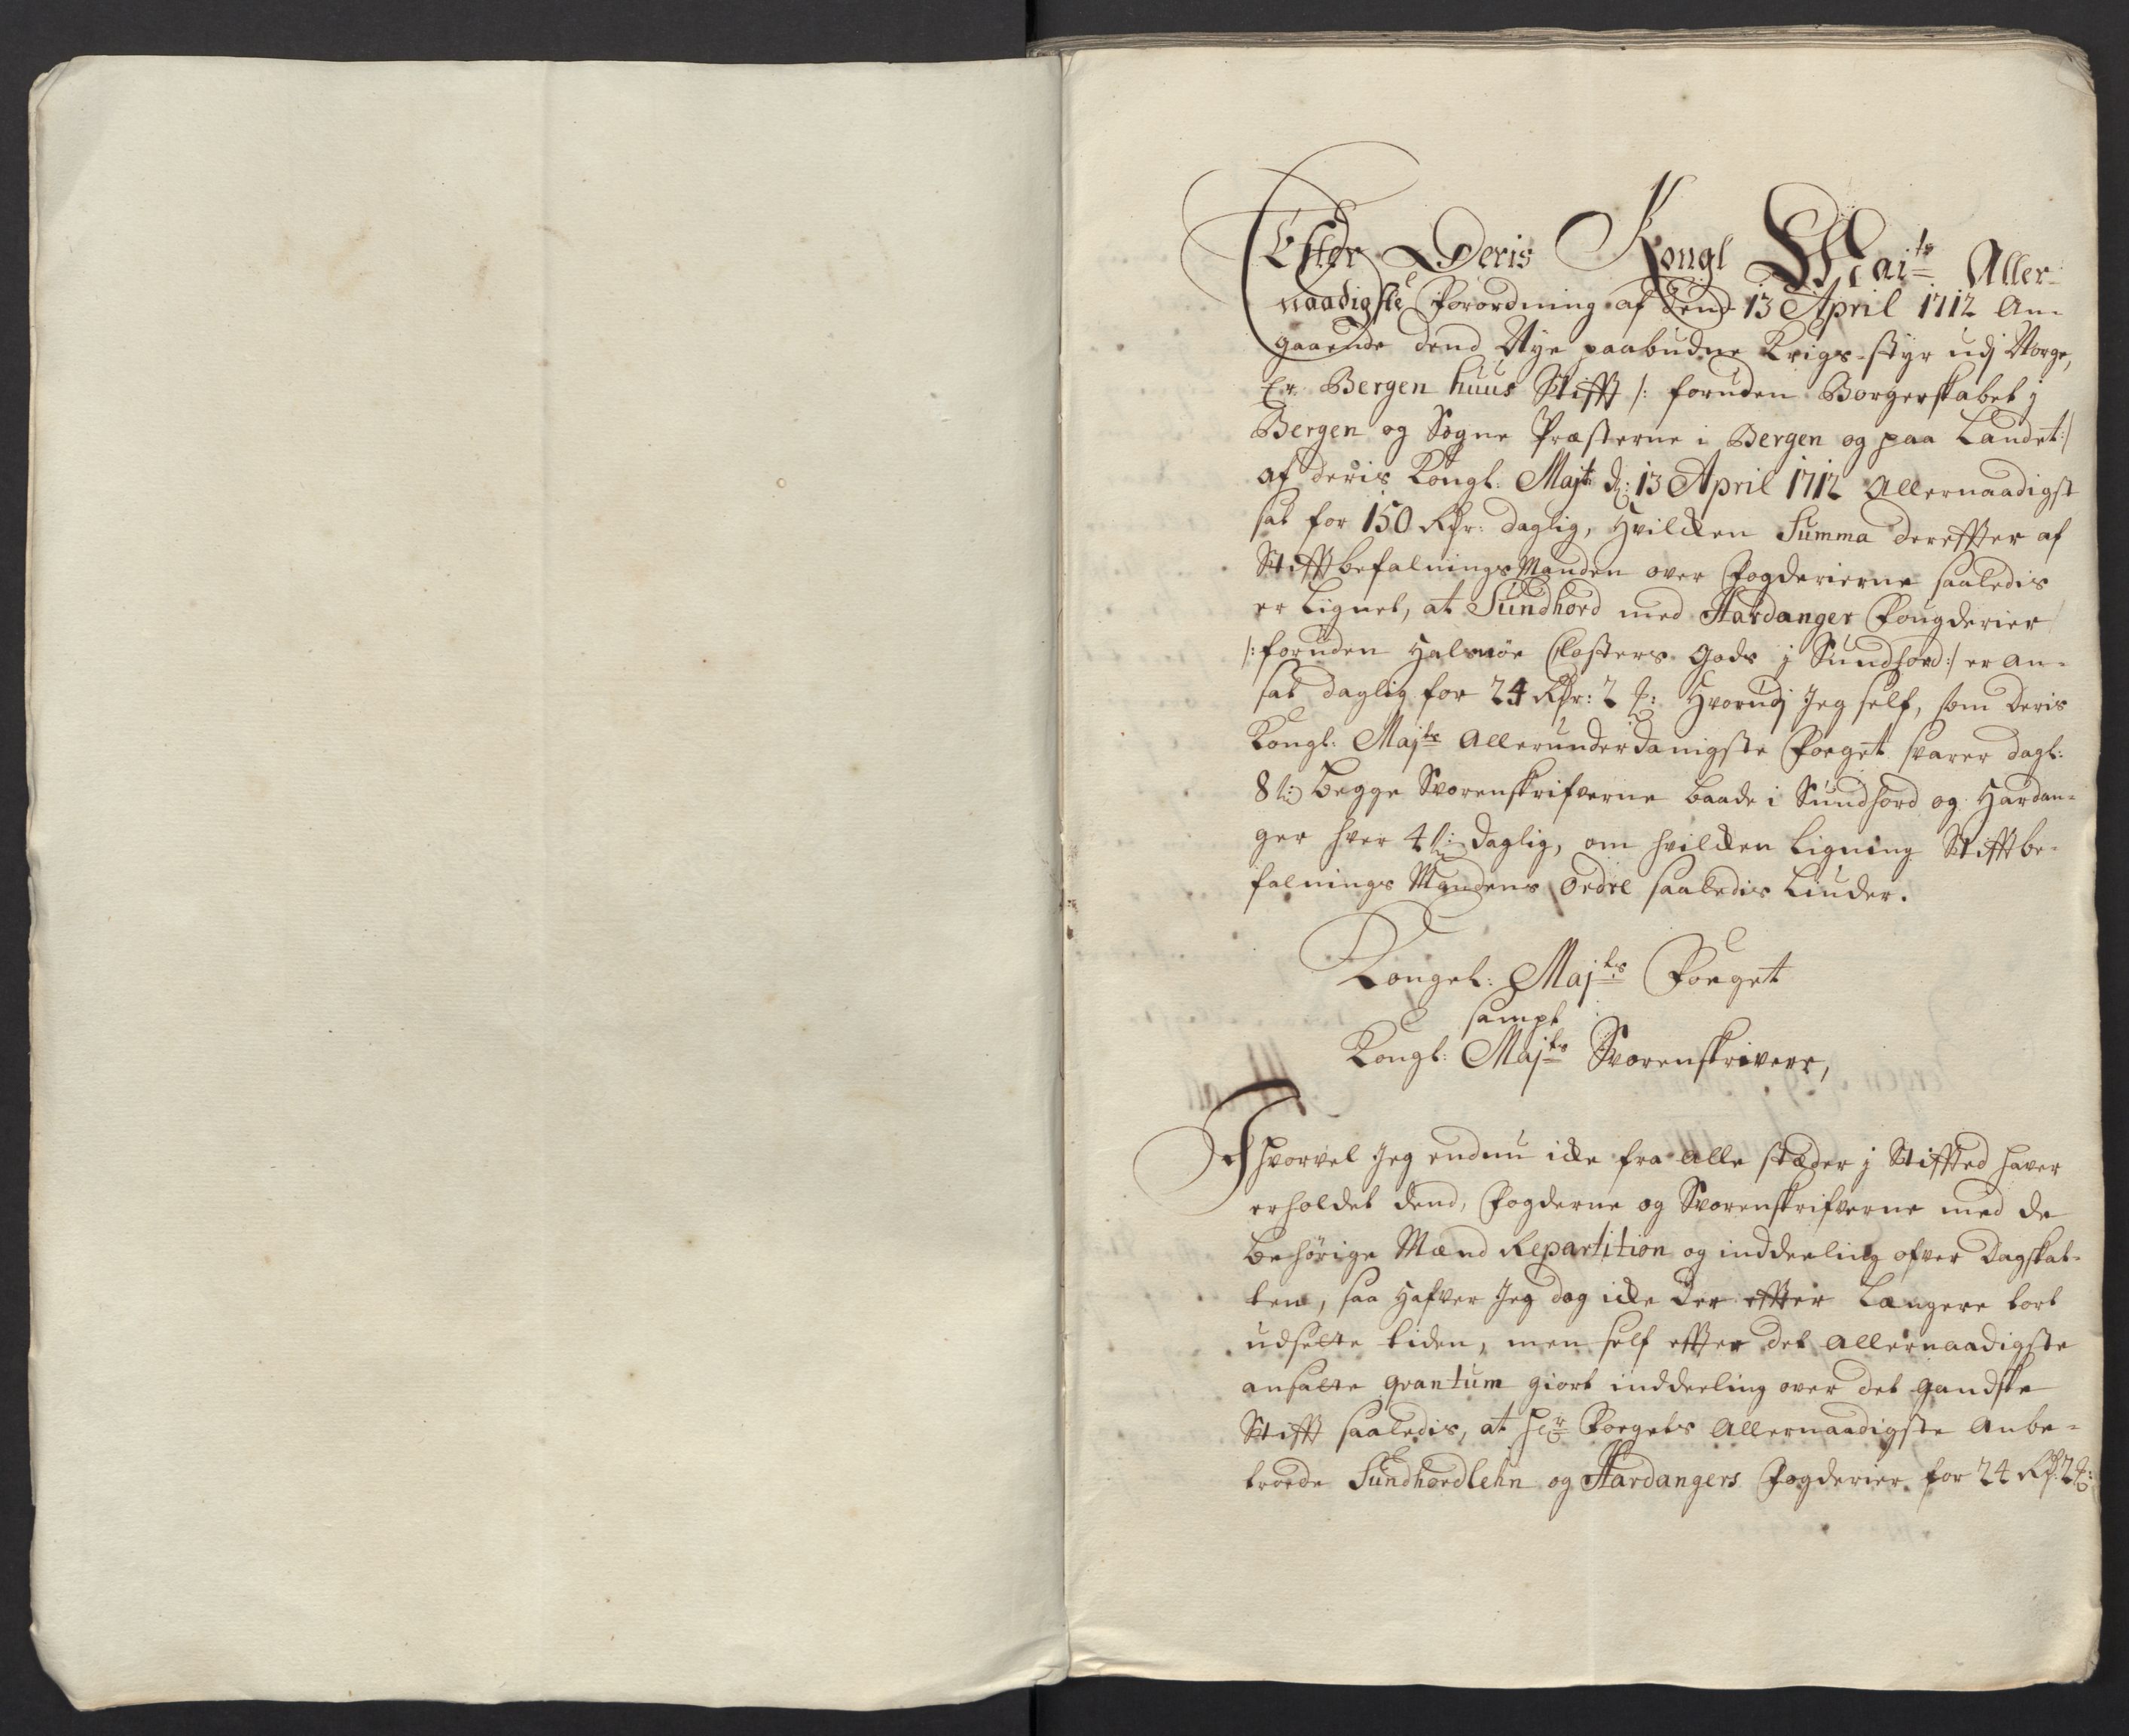 Efter Deris Kongl Mai<sup>ts</sup> Aller-
naadigste Forordning af dend 13 April 1712 An-
gaaende dend Nye paabudne Krigs-styr udj Norge,
Er Bergen huus Stifft /: foruden Borgerskabet j
Bergen og Sogne Præsterne i Bergen og paa Landet :/
af deris Kongl: Majt d: 13 April 1712 Allernaadigst
sat for 150 Rdr: daglig, Hvilcken Summa dereffter af
Stifftbefalnings Manden over Fogderierne saaledis
er Lignet, at Sundhord med Hardanger Fougderier
/: foruden Halsnøe Closters Gods j Sundhord :/ er an-
sat daglig for 24 Rdr: 2 ß: Hvorudj Jeg self, som Deris
Kongl: Maj<sup>ts</sup> Allerunderdanigste Foeget svarer dagl:
8 ß: begge Sorenskrifverne baade i Sundhord og Hardan-
ger hver 4 ß: daglig, om hvilcken Ligning Stifftbe-
falnings Mandens Ordre saaledis Liuder.
Kongel: Maj<sup>ts</sup> Foeget
sampt
Kongl: Maj<sup>ts</sup> Sorenskrivere,
Ihvorvel Jeg endnu icke fra alle stæder j Stiffted haver
erholdet dend, Fogderne og Sorenskrifverne med de
behörige Mænd Repartition og inddeeling ofver Dagskat-
ten, saa Hafver Jeg dog icke der effter Længere tort
udsætte tiden, men self effter det allernaadigste
ansatte qvantum giort inddeeling over det gandske
Stifft saaledis, at H<sup>r</sup> Foegets Allernaadigste Anbe-
troede Sundhordlehn og Hardangers Fogderier for 24 Rd: 2 ß: